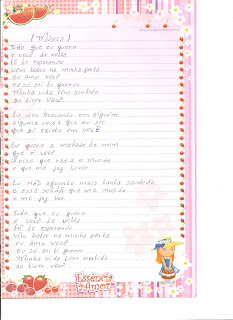 (Música)
Tudo que eu quero
é você de volta
tô te esperando
Vem bater na minha porta
eu amo você
eu só sei ti querer
Minha vida tem sentido
se tiver você.
Eu vivo buscando em alguém
alguma coisa que eu sei
que só existe em você
Eu quero a metade de mim
que é você
O riso que rodia o mundo
e que me faz viver
Eu não aguento mais tanta saudade
e essa solidão que me invade
e me faz
Tudo que eu quero
é você de volta
tô te esperando
Vem bater na minha porta
eu amo você
eu só sei ti querer
Minha vida tem sentido
se tiver você
Essência
do Amor